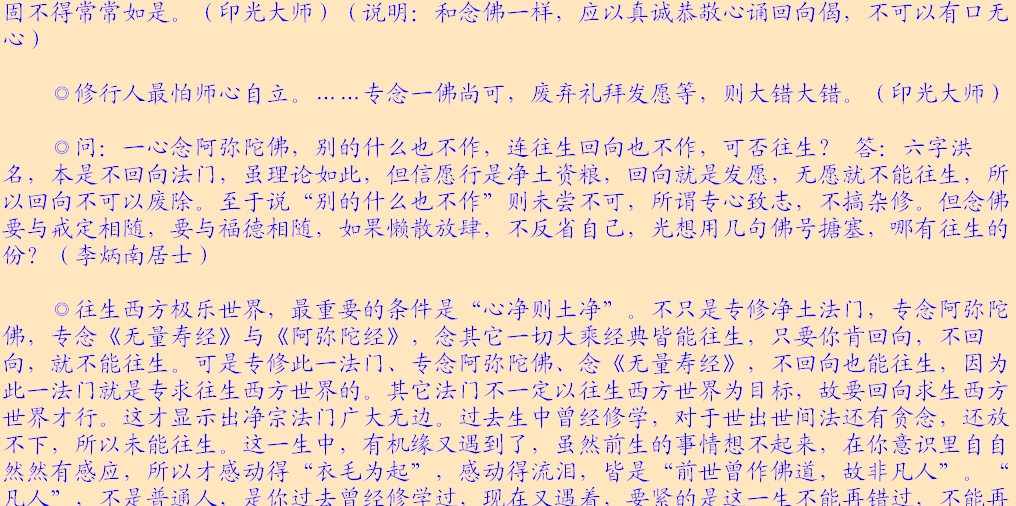 固不得常常如是。（印光大师）（说明：和念佛一样，应以真诚恭敬心诵回向偈，不可以有口无
心）
◎修行人最怕师心自立。……专念一佛尚可，废弃礼拜发愿等，则大错大错。（印光大师）
◎问：一心念阿弥陀佛，别的什么也不作，连往生回向也不作，可否往生？ 答：六字洪
名，本是不回向法门，虽理论如此，但信愿行是净土资粮，回向就是发愿，无愿就不能往生，所
以回向不可以废除。至于说“别的什么也不作”则未尝不可，所谓专心致志，不搞杂修。但念佛
要与戒定相随，要与福德相随，如果懒散放肆，不反省自己，光想用几句佛号搪塞，哪有往生的
份？（李炳南居士）
◎往生西方极乐世界，最重要的条件是“心净则土净”。不只是专修净土法门，专念阿弥陀
佛，专念《无量寿经》与《阿弥陀经》，念其它一切大乘经典皆能往生，只要你肯回向，不回
向，就不能往生。可是专修此一法门、专念阿弥陀佛、念《无量寿经》，不回向也能往生，因为
此一法门就是专求往生西方世界的。其它法门不一定以往生西方世界为目标，故要回向求生西方
世界才行。这才显示出净宗法门广大无边。过去生中曾经修学，对于世出世间法还有贪念，还放
不下，所以未能往生。这一生中，有机缘又遇到了，虽然前生的事情想不起来，在你意识里自自
然然有感应，所以才感动得“衣毛为起”，感动得流泪，皆是“前世曾作佛道，故非凡人”。“
凡人”，不是普通人，是你过去曾经修学过，现在又遇着，要紧的是这一生不能再错过，不能再